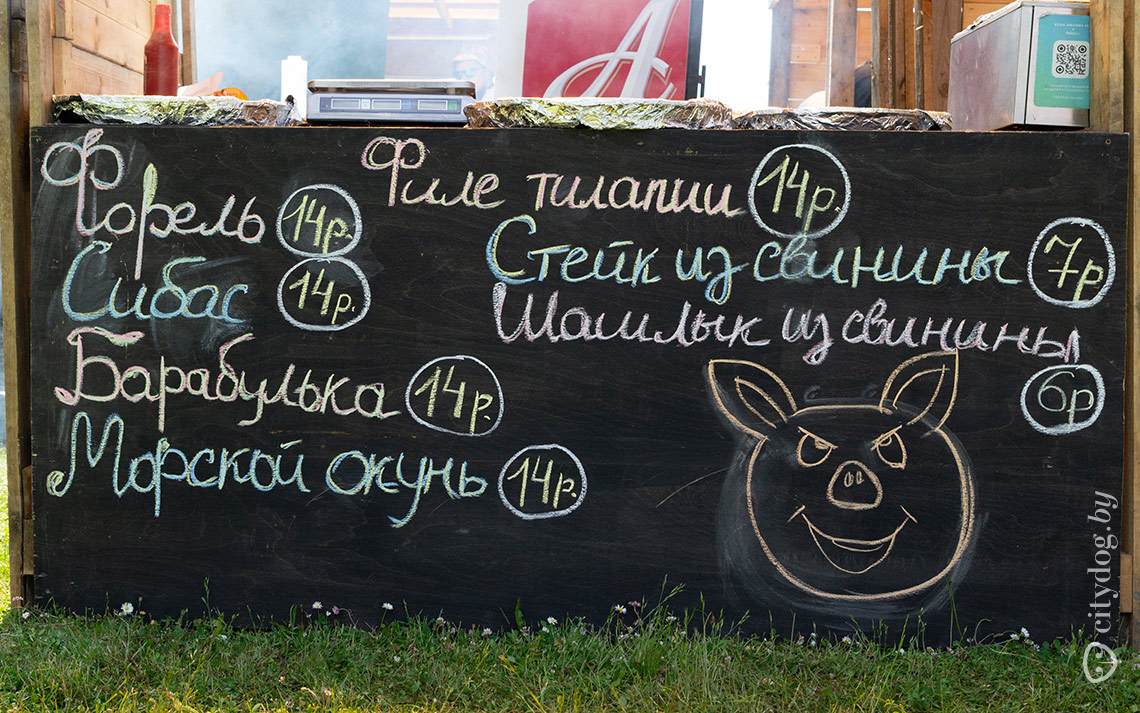 Форель 14р.
Сибас 14р.
Барабулька 14р.
Морской окунь 14р.
Филе тилапии 14р.
Стейк из свинины 7р
Шашлык из свинины
6р
citydog.by